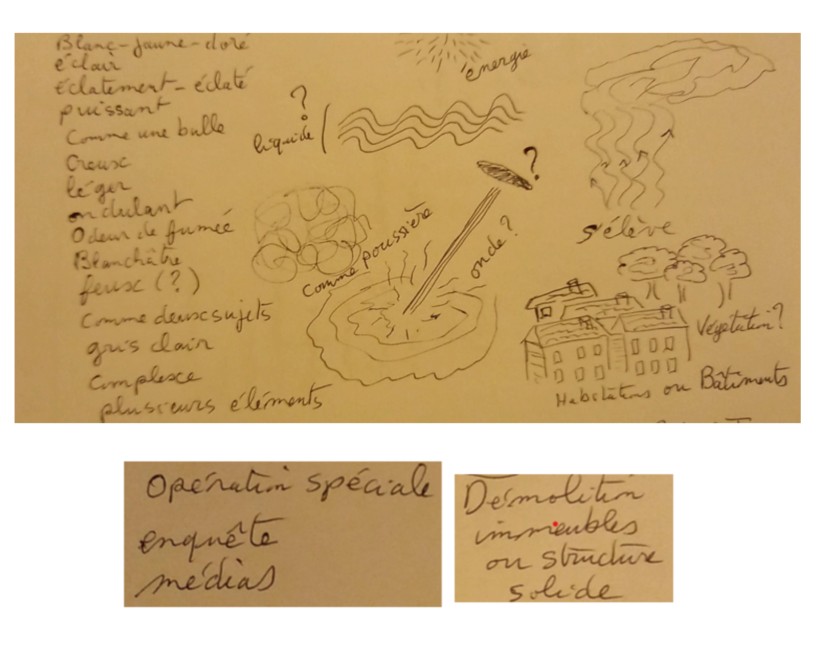 Blanc-jaune-doré
éclair
éclatement-éclaté
puissant
Comme une bulle
Creux
léger
ondulant
Odeur de fumée
Blanchâtre
feux (?)
Comme deux sujets
gris clair
Complexe
plusieurs éléments
énergie
?
liquide
?
Comme poussière
onde?
s'élève
Végétation?
Habitations ou Bâtiments
Opération spéciale
enquête
médias
Démolition
immeubles
ou structure
solide